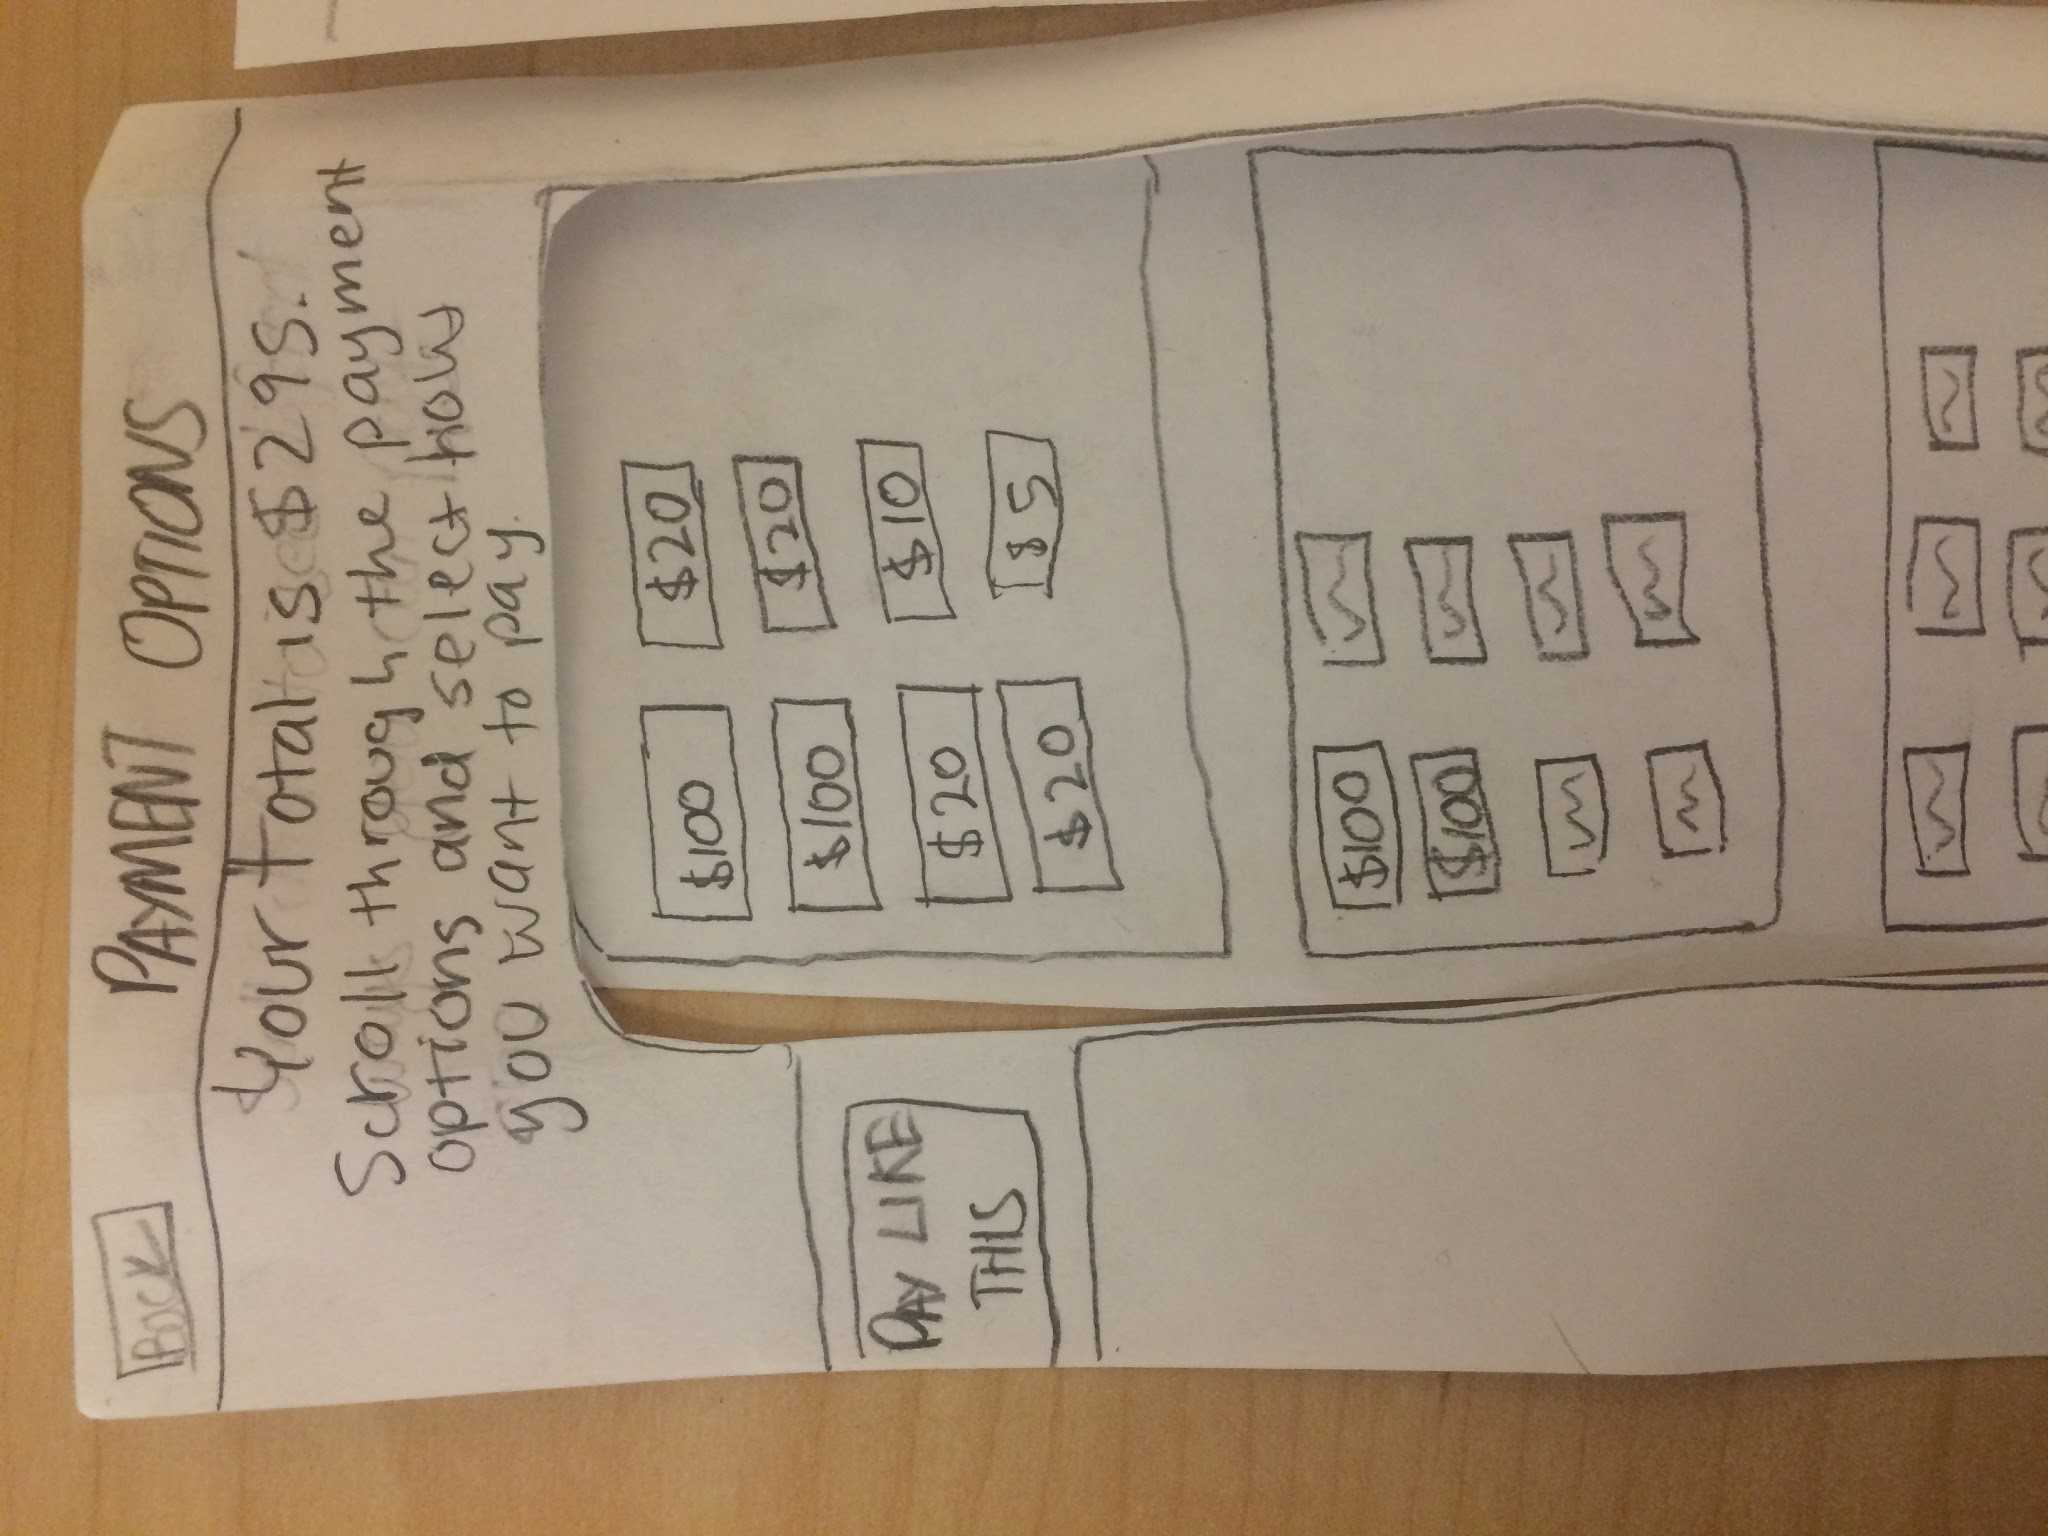 BACK
PAYMENT OPTIONS
Your total is $295.
Scroll through the payment
options and select how
you want to pay.
$100 $20
$100 $20
$20 $10
$20 $5
PAY LIKE
THIS
$100
$100